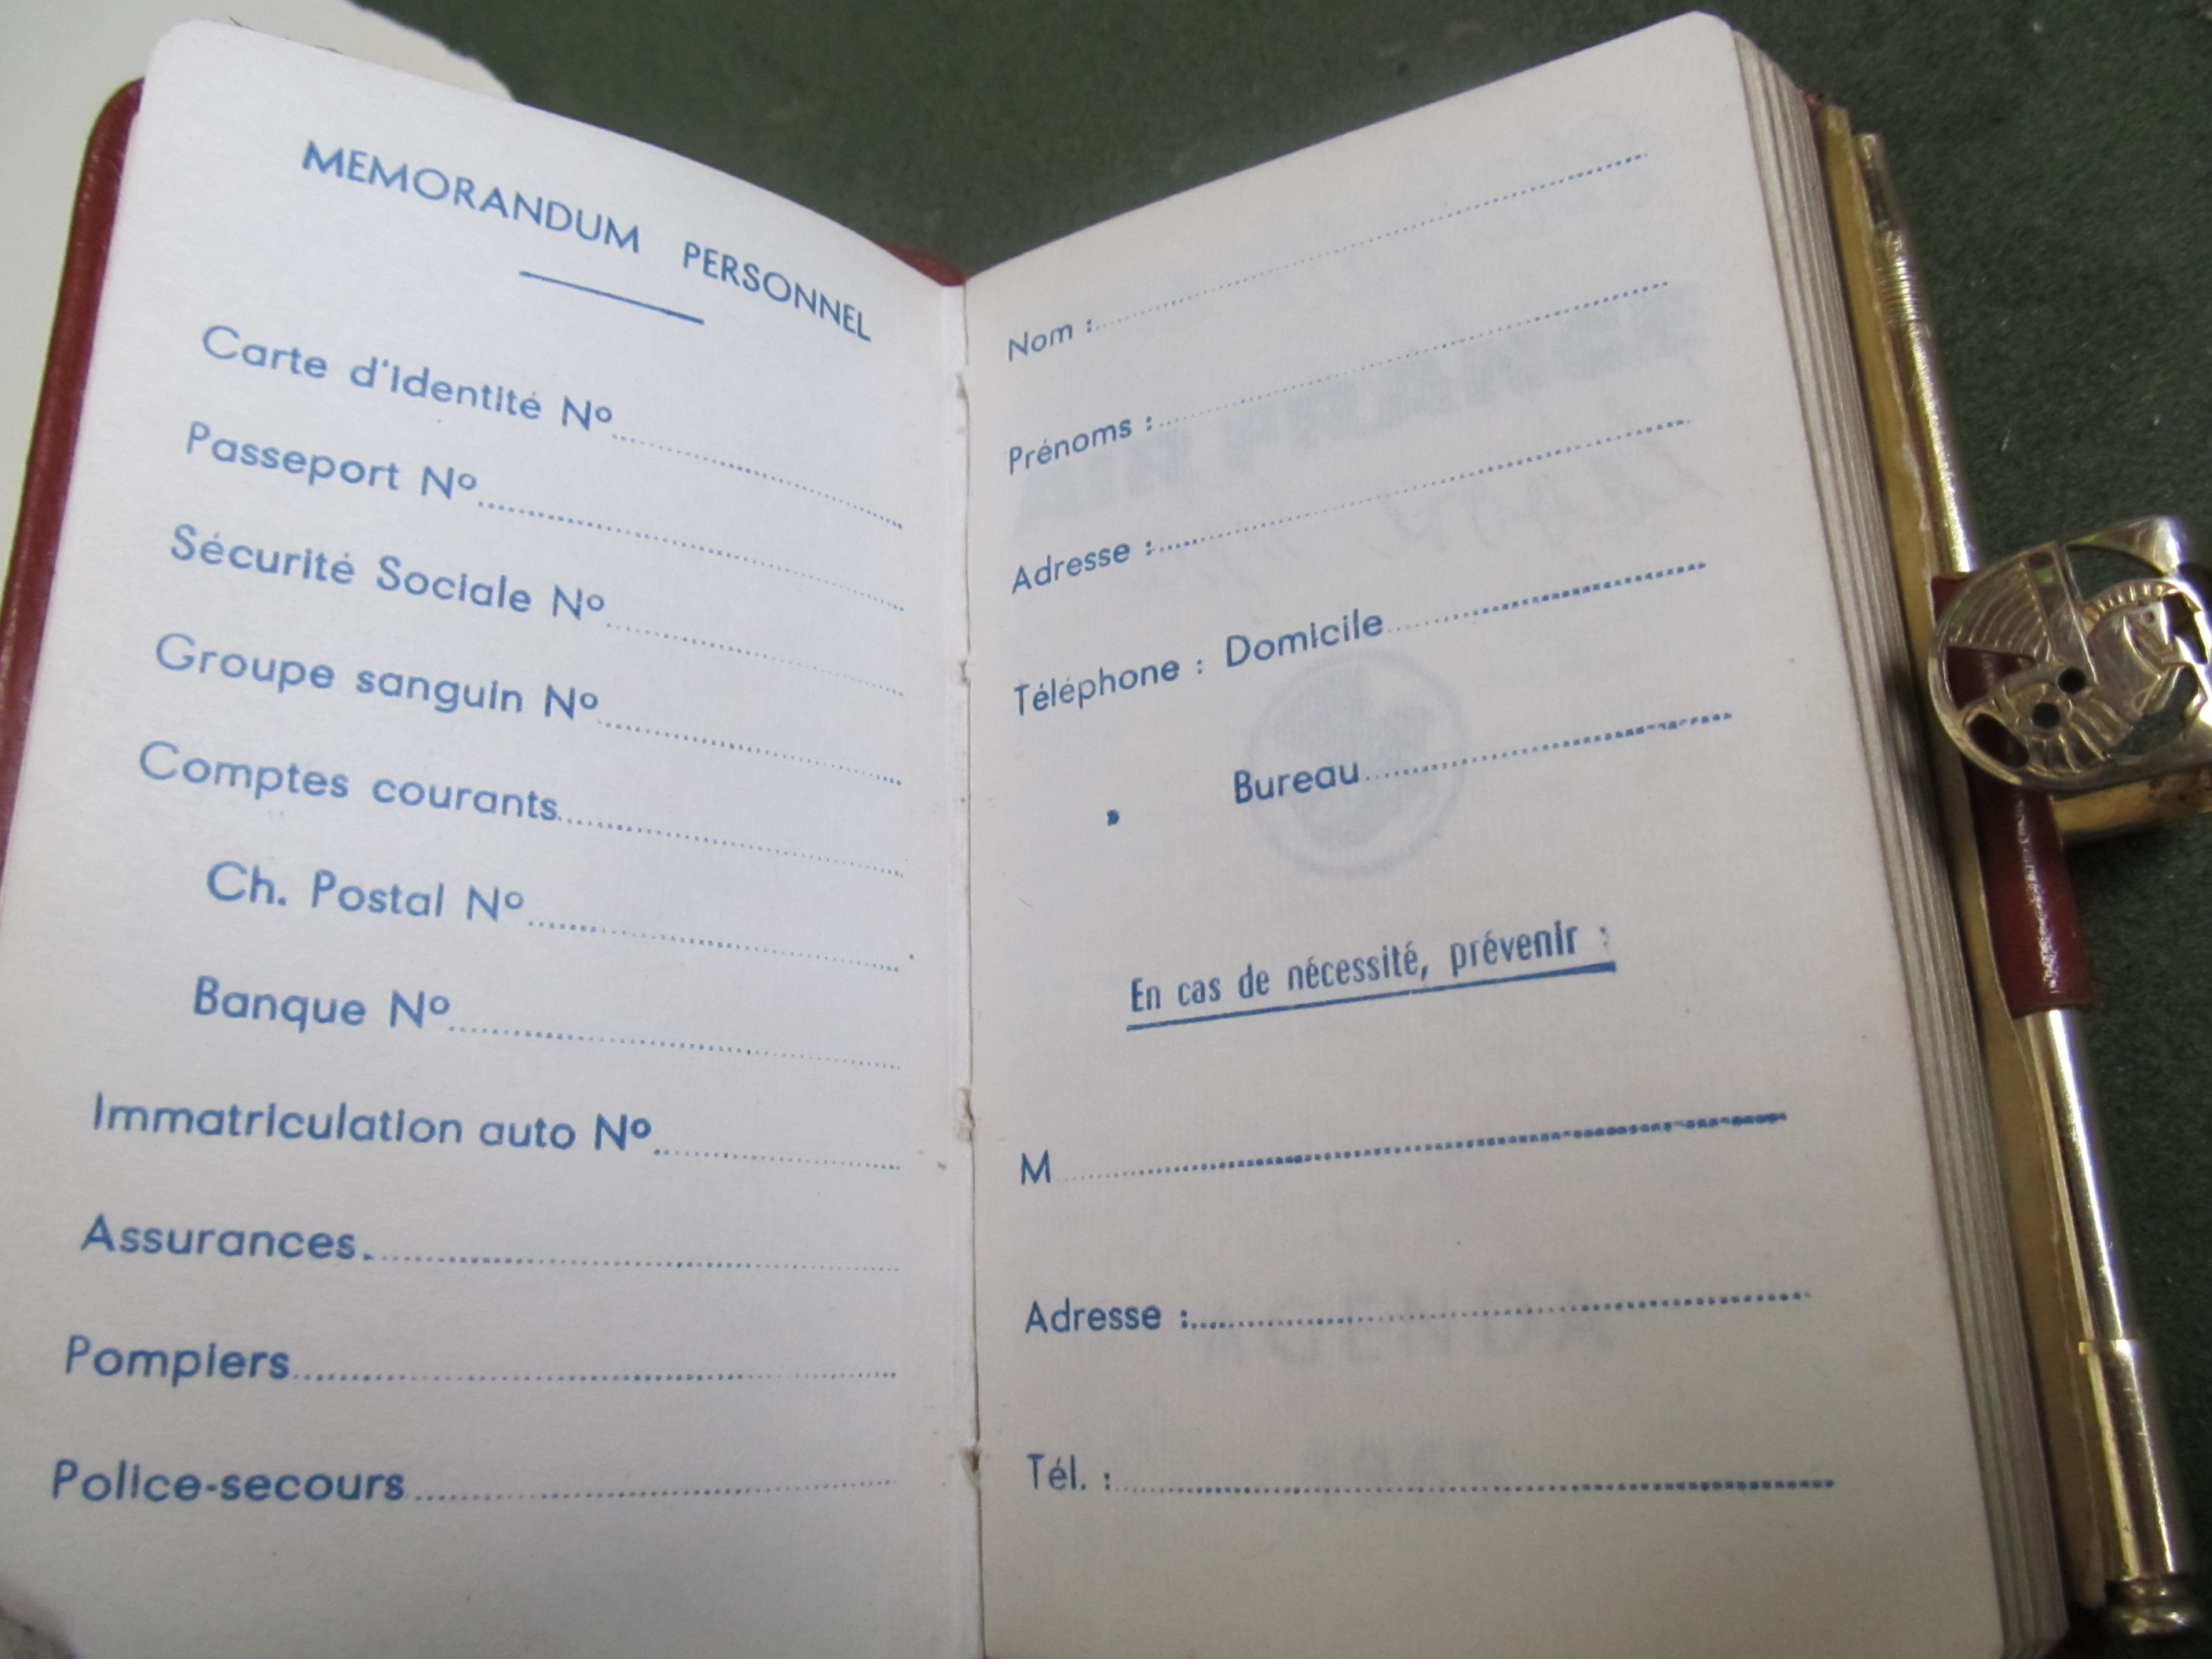 MEMORANDUM PERSONNEL
Carte d'Identité Nº
Passeport Nº
Sécurité Sociale Nº
Groupe sanguin Nº
Comptes courants
Ch. Postal Nº
Banque Nº
Immatriculation auto Nº
Assurances
Pompiers
Police-secours
Nom :
Prénoms :
Adresse :
Téléphone : Domicile
» Bureau
En cas de nécessité, prévenir :
M
Adresse :
Tél. :
AGENDA